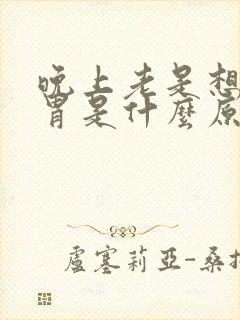 晚上老是想
胃是什麼原
盧塞莉亞-桑